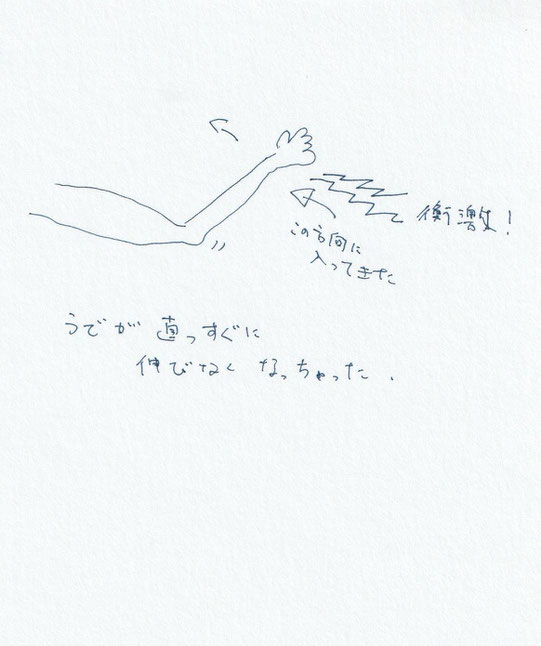 衝撃!
この方向に
入ってきた
うでが 直っすぐに
伸びなく なっちゃった.